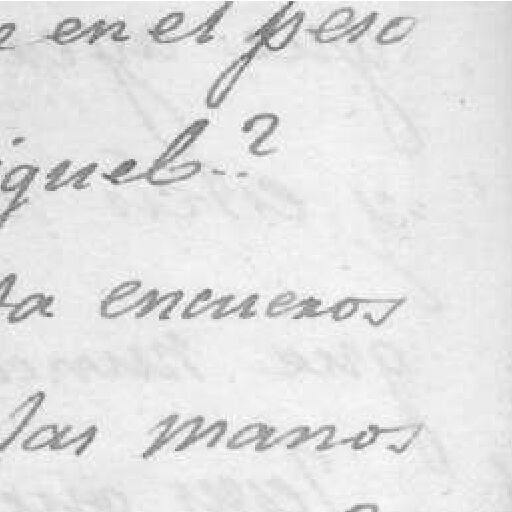 en el peso
iguel..?
ta encueros
las manos